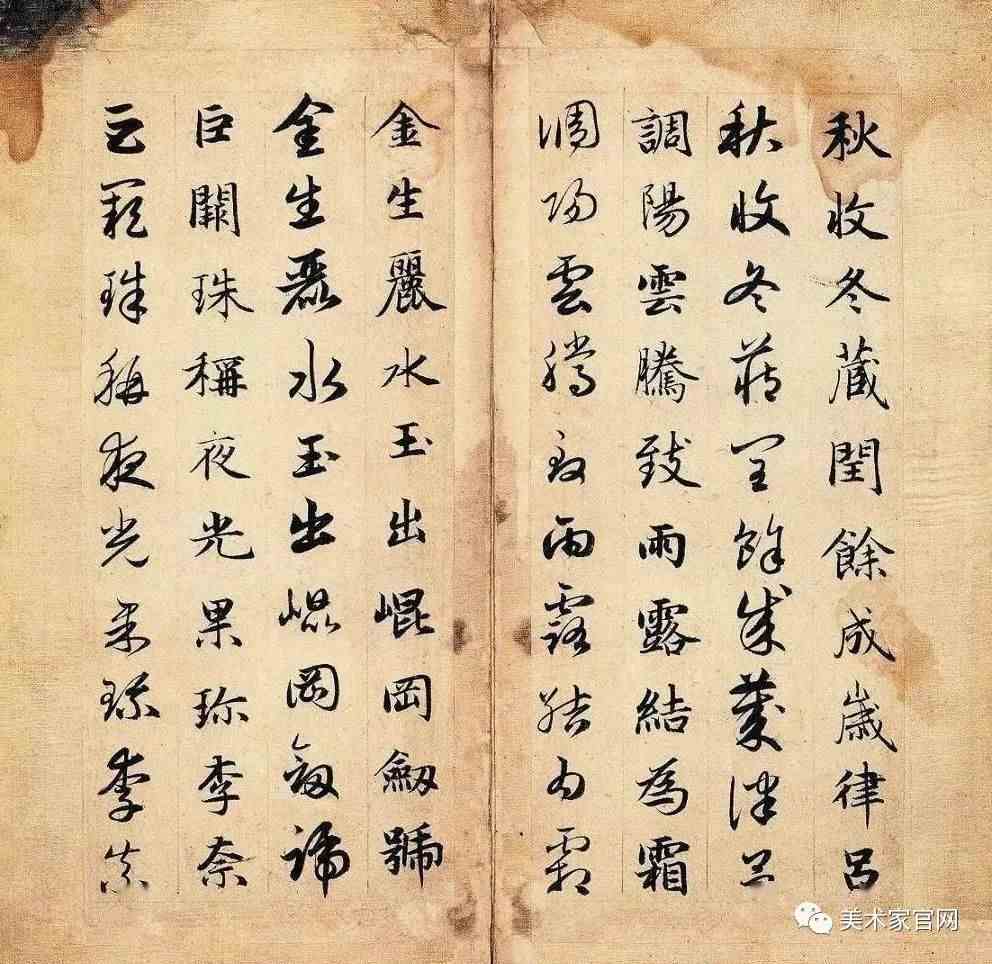 秋收冬蔵閏餘成歲律呂
秋收冬蔵閏餘成歲律呂
調陽雲騰致雨露結為霜
調陽雲騰致雨露結為霜
金生麗水玉出崐岡劒號
金生麗水玉出崐岡劒號
巨闕珠稱夜光果珎李柰
巨闕珠稱夜光果珎李柰
美术家官网